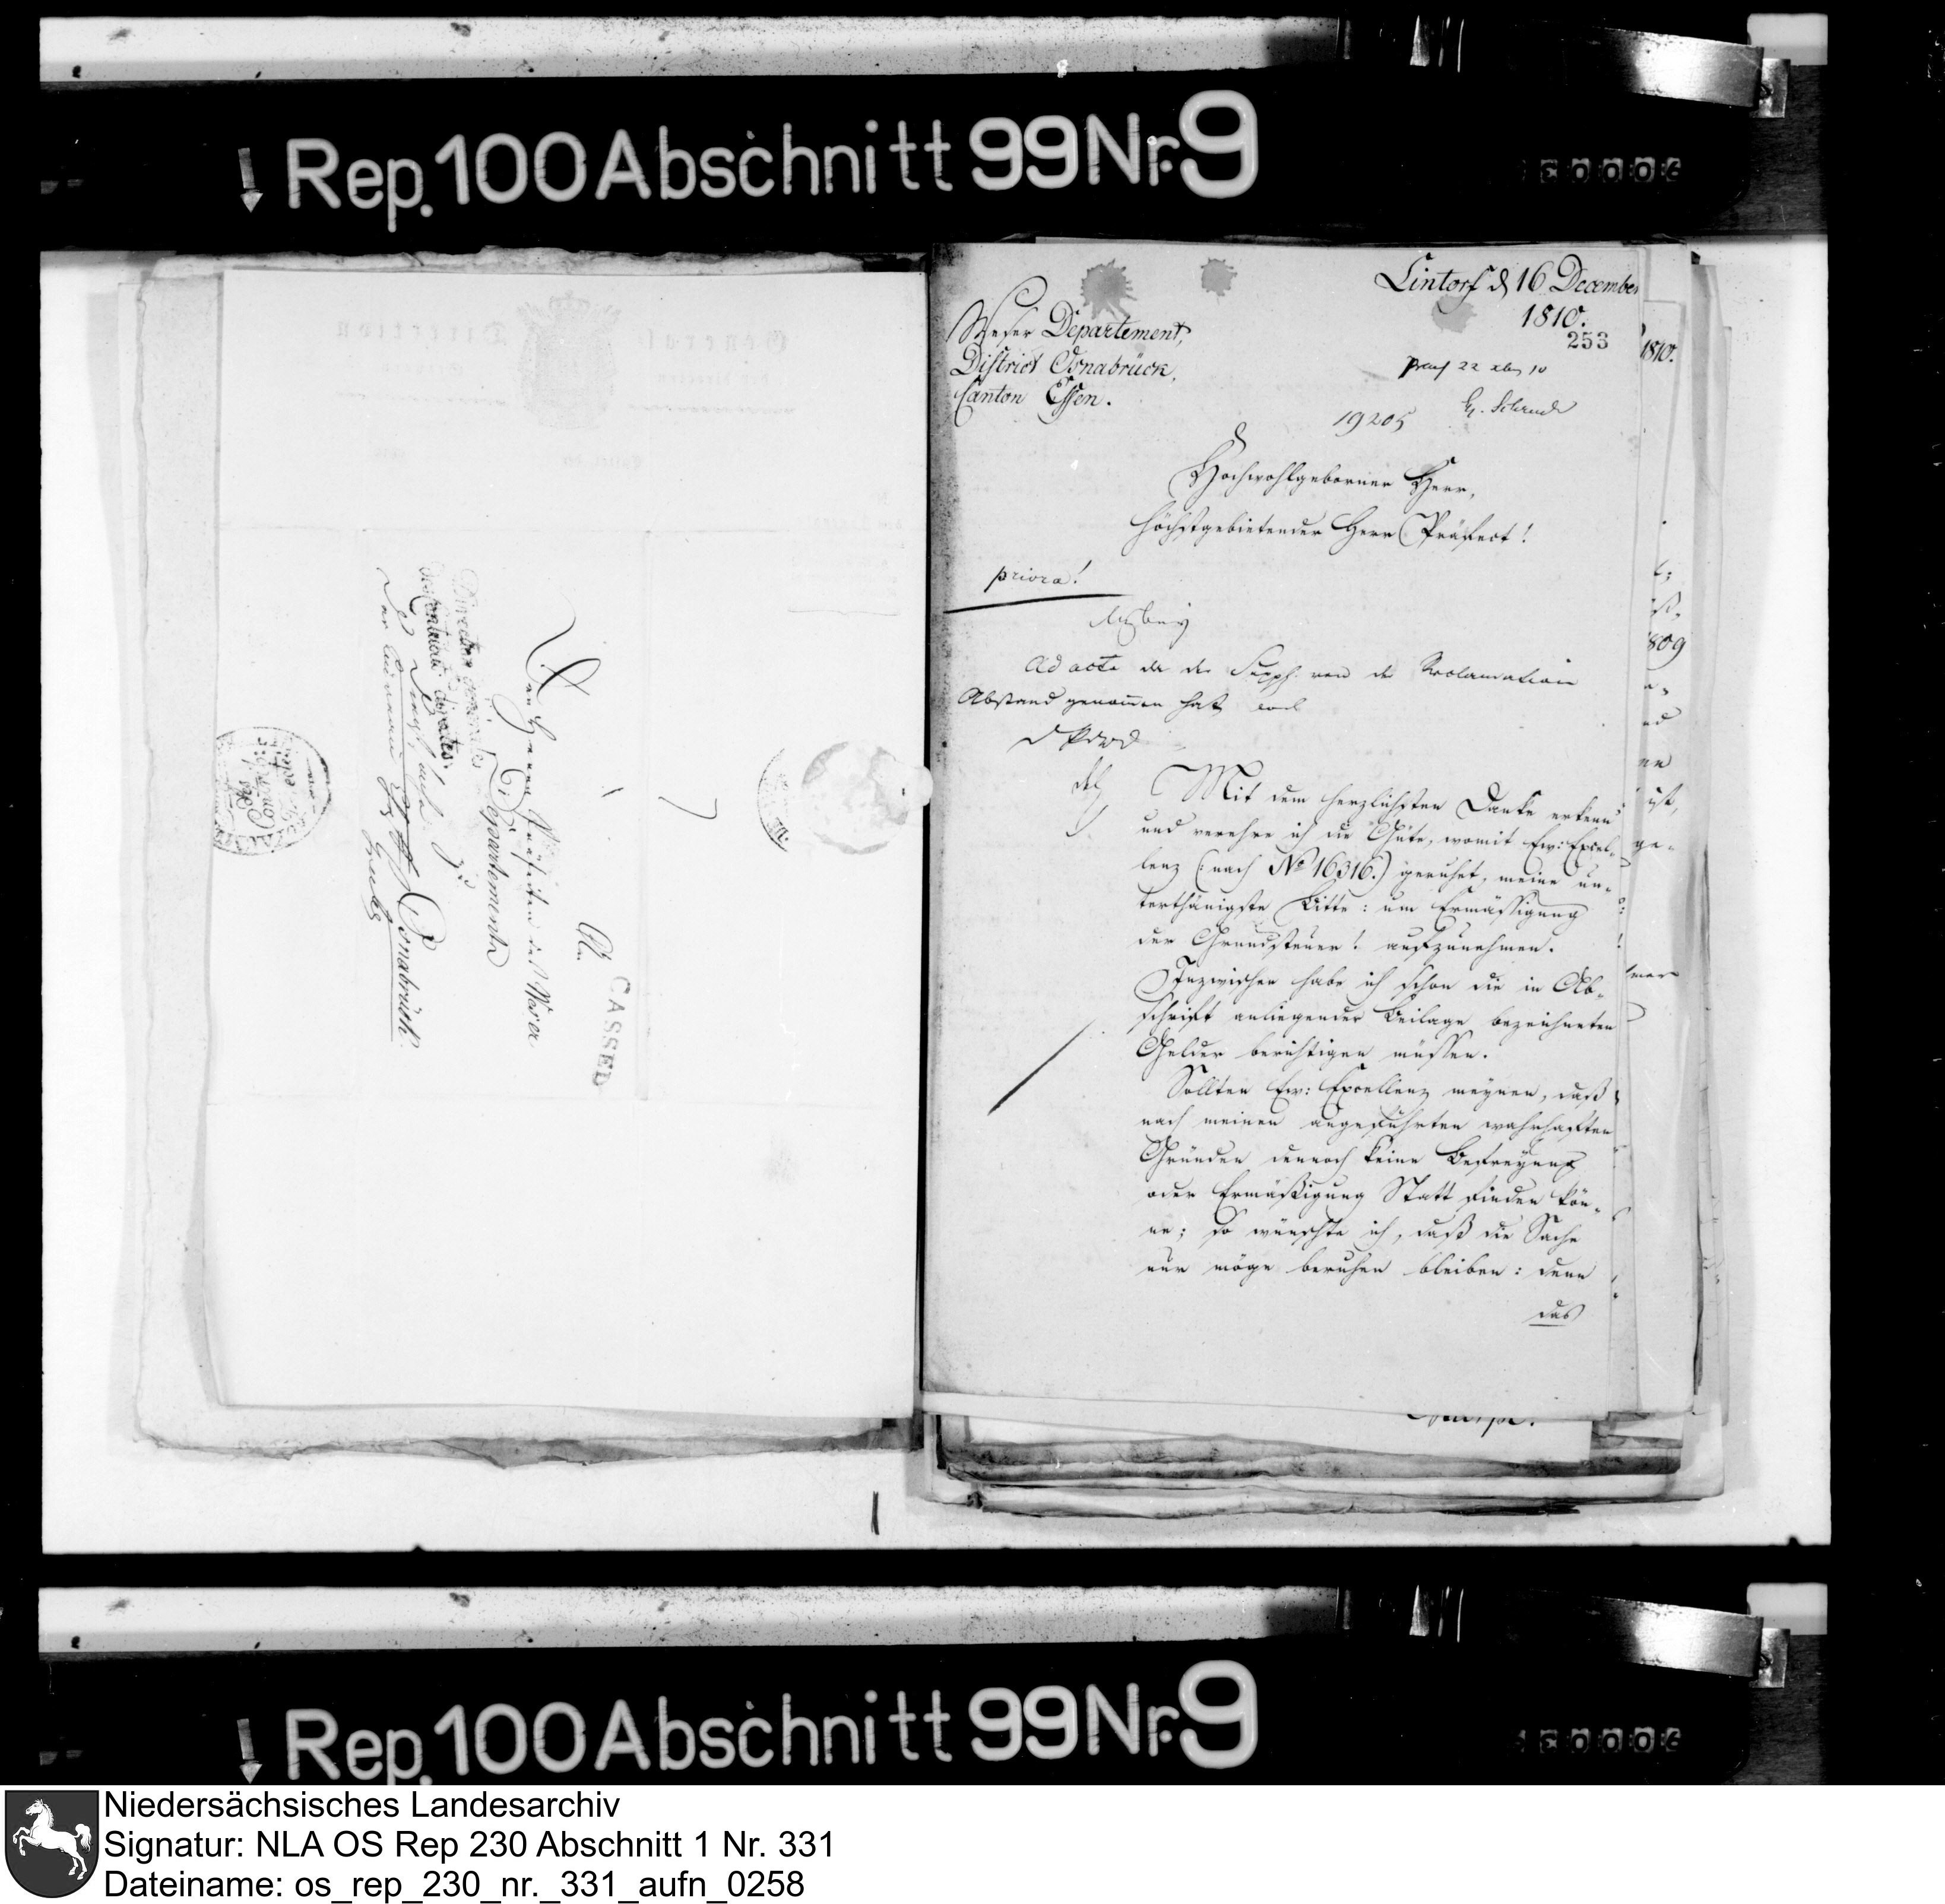 Rep. 100 Abschnitt 99 Nr. 9
Lintorf d 16 December
1810.
253
Weser Departement,
District Osnabrück,
Canton Essen.
praes 22 xbr 10
19205
Hochwohlgeborner Herr,
höchstgebietender Herr Präfect!
priora!
Ad acta da der Supp: von der Reclamation
Abstand genommen hat
Mit dem herzlichsten Danke erkenn
und verehre ich die Güte, womit Ew: Excel-
lenz (: nach No 16316.) geruhet, meine un-
terthänigste Bitte: um Ermässigung
der Grundsteuer! aufzunehmen.
Inzwischen habe ich schon die in Ab-
schrift anliegender Beilage bezeichneten
Gelder berichtigen müssen.
Sollten Ew: Excellenz meynen, daß
nach meinen angeführten wahrhaften
Gründen dennoch keine Befreyung
oder Ermäßigung Statt finden kön-
ne; so wünschte ich, daß die Sache
nur möge beruhen bleiben: denn
das
An
den Herrn Präfecten des Weser
Departements
Osnabrück
CASSEL
1810.
809
ist,
ge-
Rep. 100 Abschnitt 99 Nr. 9
Niedersächsisches Landesarchiv
Signatur: NLA OS Rep 230 Abschnitt 1 Nr. 331
Dateiname: os_rep_230_nr._331_aufn_0258